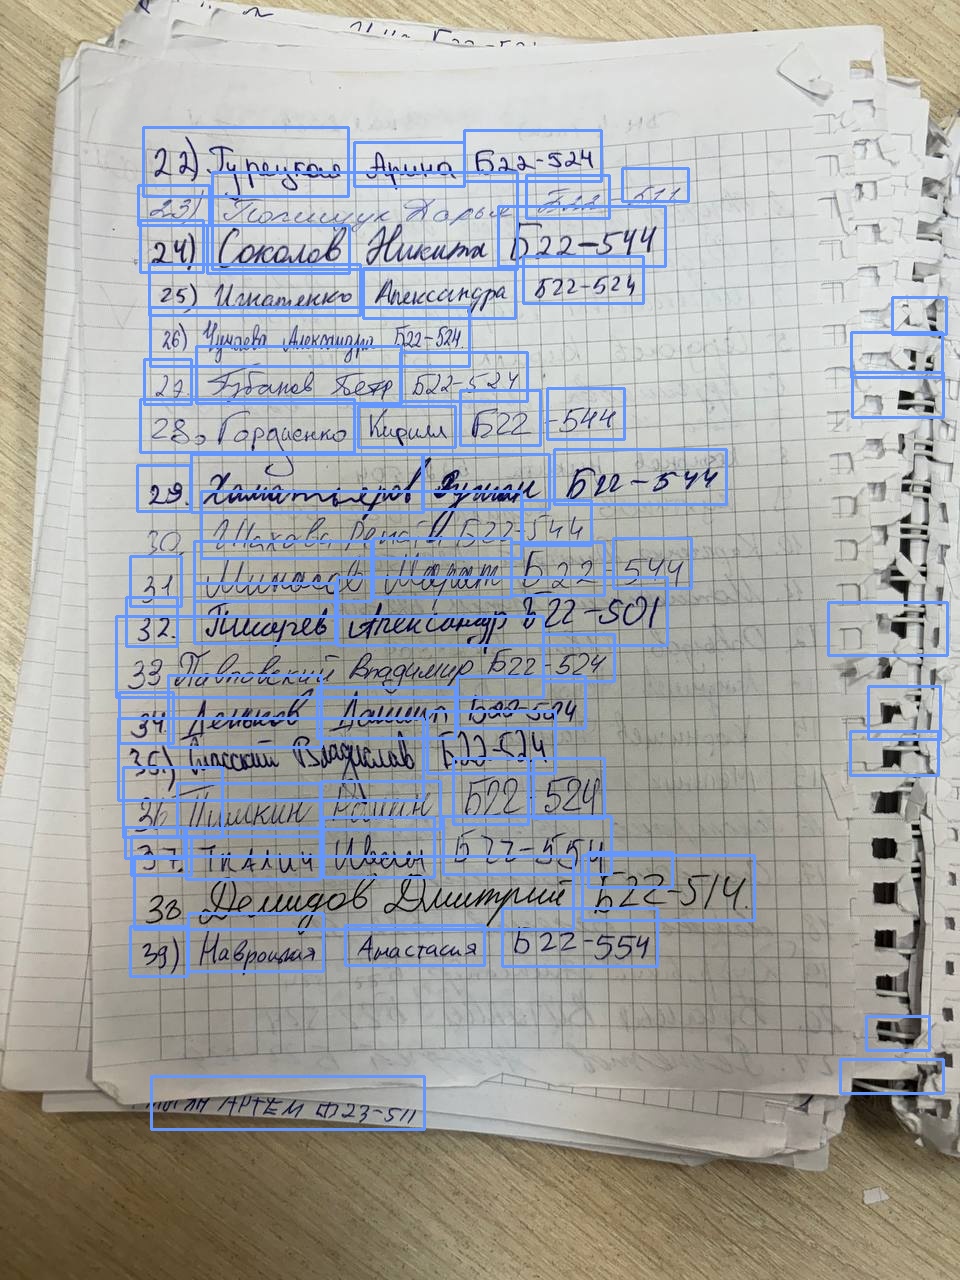 22) Турецкая Арина Б22-524
23) Полищук Дарья Б22-511
24) Соколов Никита Б22-544
25) Игнатенко Александра Б22-524
26) Чучаева Александра Б22-524
27. Губанов Петр Б22-524
28. Гордиенко Кирилл Б22-544
29. Хаматьяров Руслан Б22-544
30. Шахова Рената Б22-544
31 Минасов Марат Б22-544
32. Писарев Александр Б22-501
33 Павловский Владимир Б22-524
34. Деньков Даниил Б22-524
35.) Спасский Владислав Б22-524
36 Пушкин Б22-524
37. Ткалич Иван Б22-554
38. Демидов Дмитрий Б22-514.
39) Навроцкая Анастасия Б22-554
АРТЕМ Ф23-511